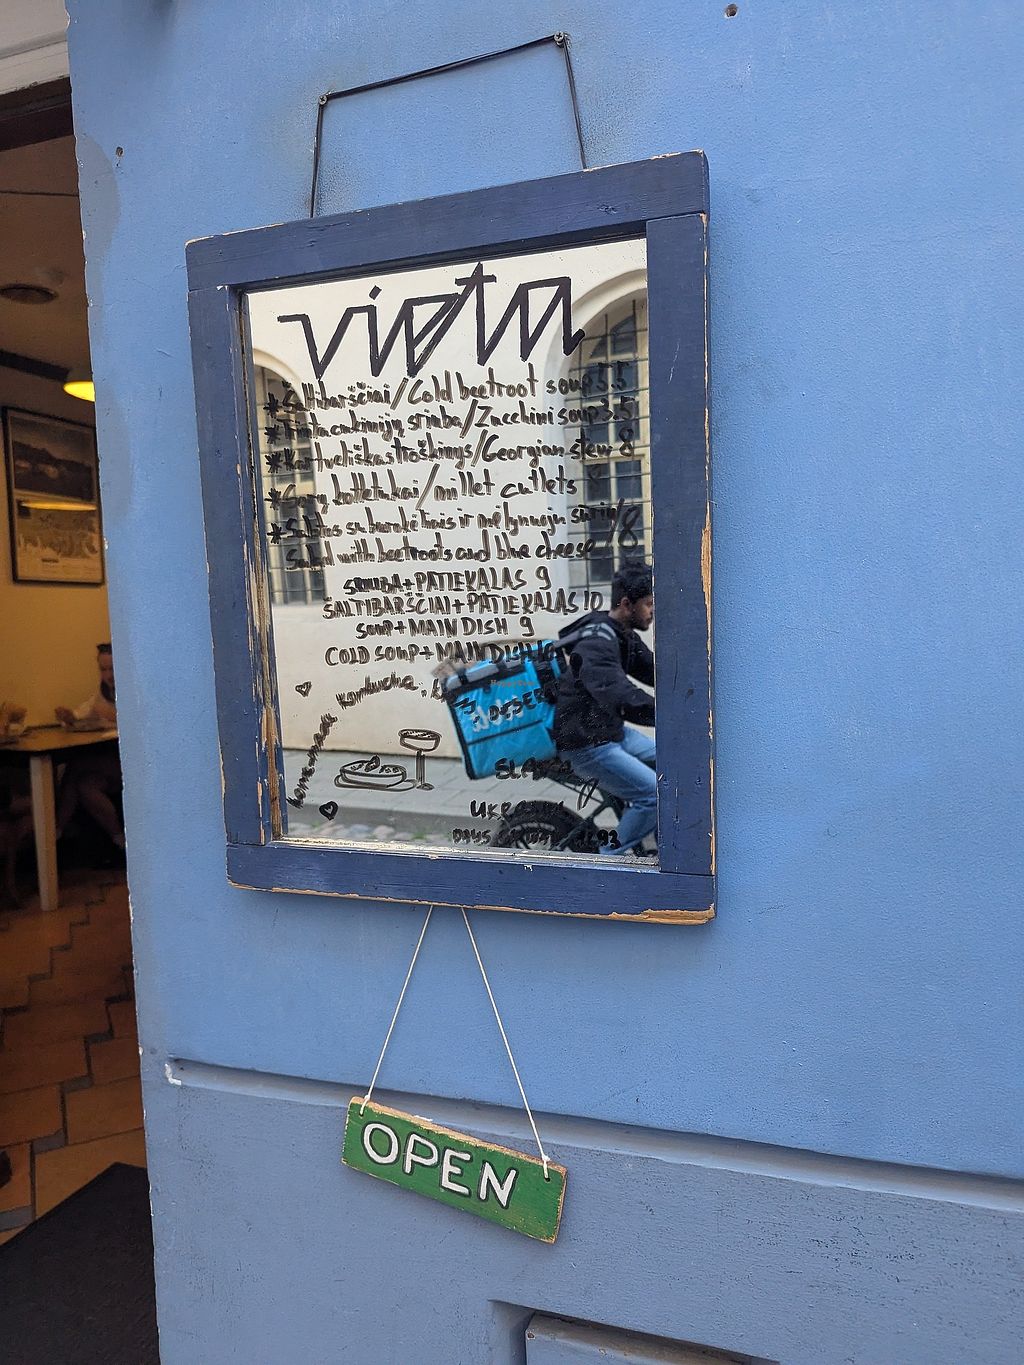 vieta
* Šaltibarščiai/Cold beetroot soup 5.5
* Trinta cukinijų sriuba/Zucchini soup 3.5
* Kartveliškas troškinys/Georgian stew 8
* Sorų kotletukai/millet cutlets 8
* Salotos su burokėliais ir mėlynuoju sūriu/8
Salad with beetroots and blue cheese
SRIUBA + PATIEKALAS 9
ŠALTIBARŠČIAI + PATIEKALAS 10
SOUP + MAIN DISH 9
COLD SOUP + MAIN DISH 10
home-made kombucha
DESERT
SLAVA
UKRAINI
OPEN